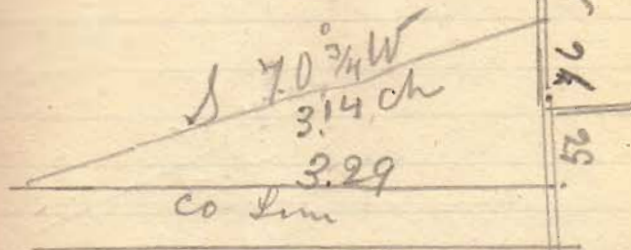 S 70°¾ W
3.14 ch
3.29
co Line
25